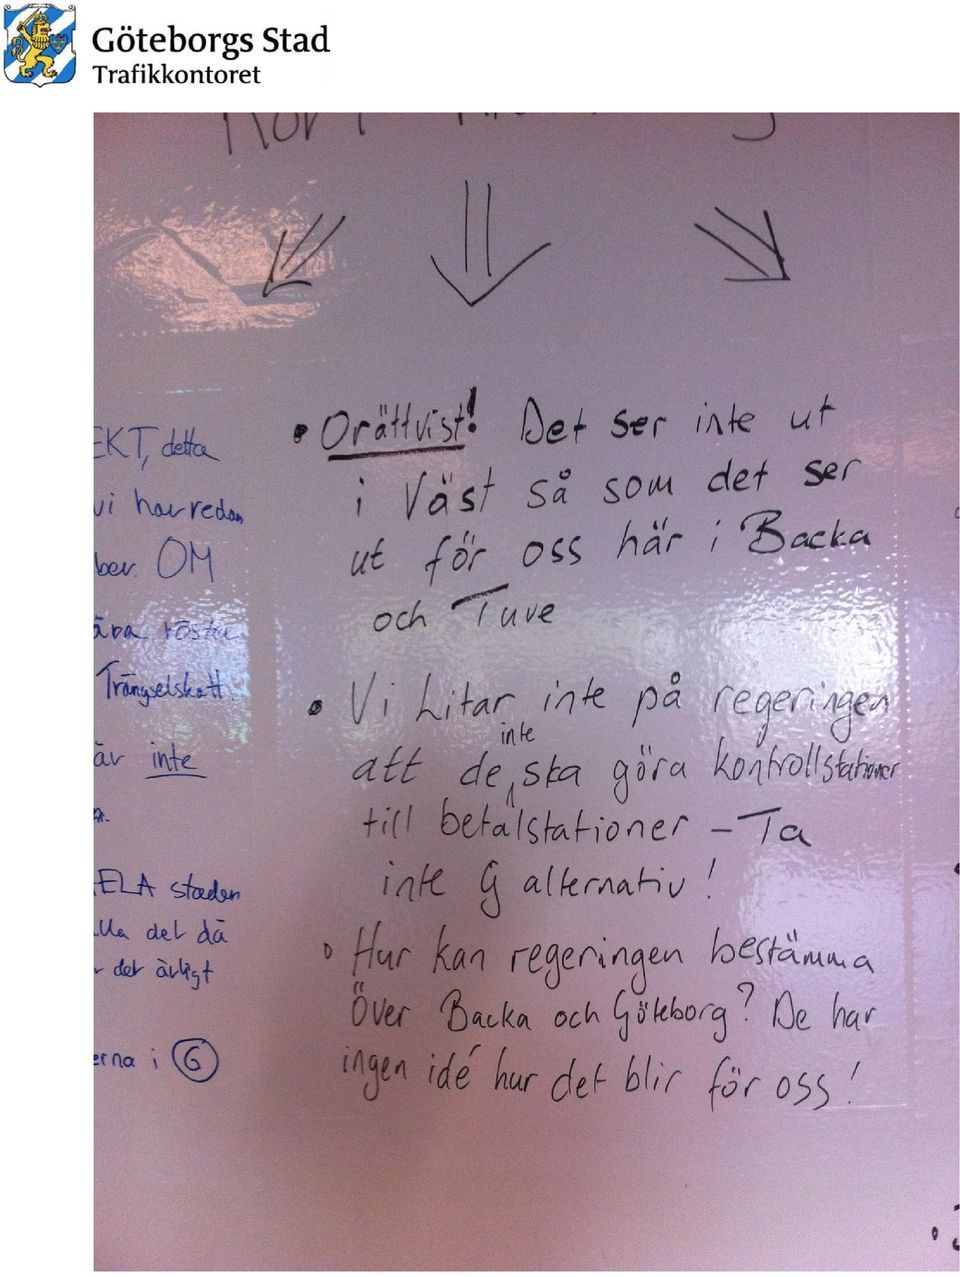 Göteborgs Stad
Trafikkontoret
EKT, detta
vi har redan
OM
rösta
Trängselskatt.
är inte
ELA staden
det då
det ärligt
erna i G
• Orättvist! Det ser inte ut
i Väst så som det ser
ut för oss här i Backa
och Tuve
• Vi Litar inte på regeringen
att de inte ska göra kontrollstationer
till betalstationer – Ta
inte G alternativ!
• Hur kan regeringen bestämma
över Backa och Göteborg? De har
ingen idé hur det blir för oss!